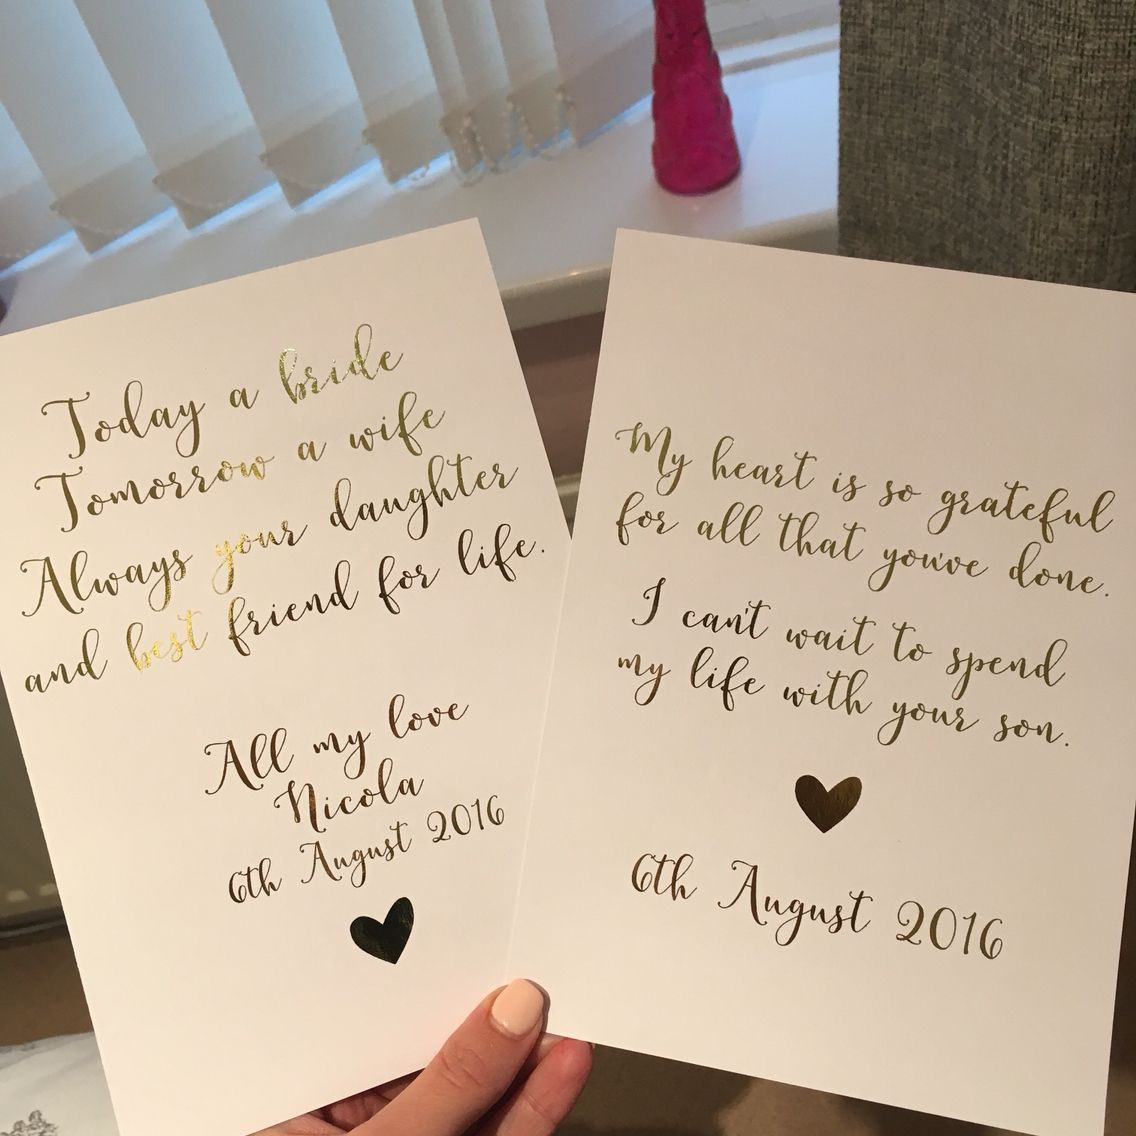 Today a bride
Tomorrow a wife
Always your daughter
and best friend for life.
All my love
Nicola
6th August 2016
My heart is so grateful
for all that you've done.
I can't wait to spend
my life with your son.
6th August 2016